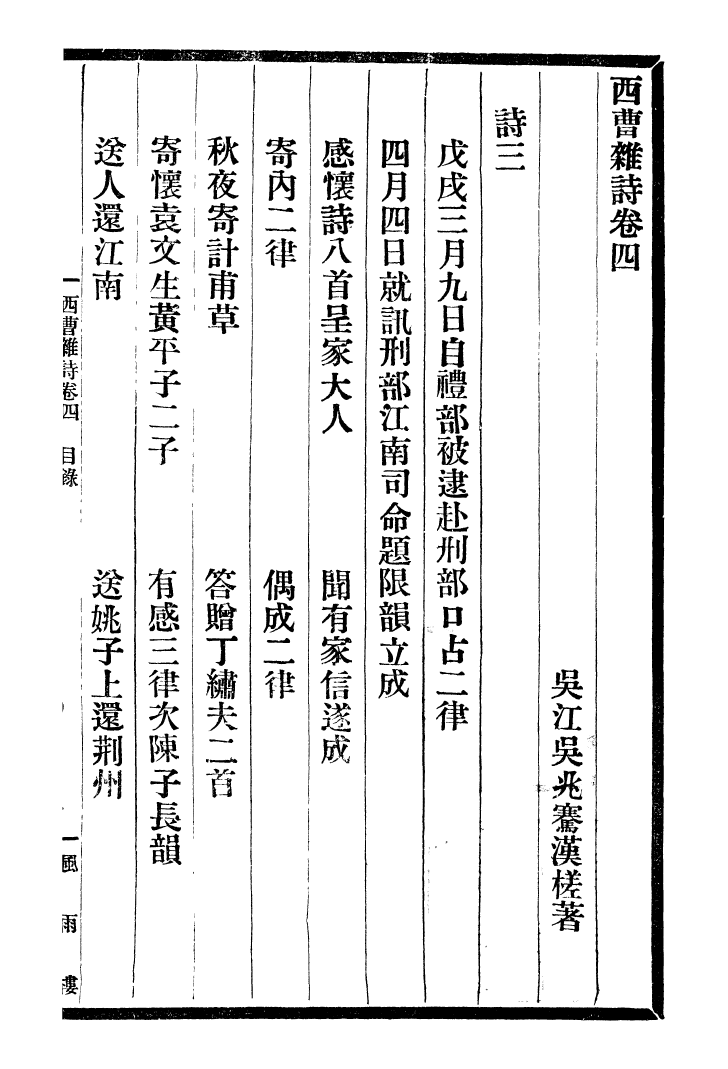 西曹雜詩卷四
吳江吳兆騫漢槎著
詩三
戊戌三月九日自禮部被逮赴刑部口占二律
四月四日就訊刑部江南司命題限韻立成
感懷詩八首呈家大人　聞有家信遂成
寄內二律　偶成二律
秋夜寄計甫草　答贈丁繡夫二首
寄懷袁文生黃平子二子　有感三律次陳子長韻
送人還江南　送姚子上還荆州
西曹雜詩卷四　目錄
風雨樓